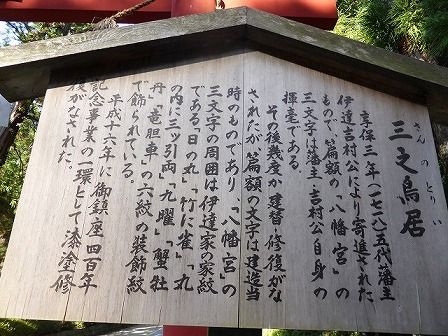 三之鳥居
さんのとりい
享保三年(一七一八)五代藩主
伊達吉村公により寄進された
もので、篇額の「八幡宮」の
三文字は藩主・吉村公自身の
揮毫である。
その後幾度か建替・修復がな
されたが篇額の文字は建造当
時のものであり、「八幡宮」の
三文字の周囲は伊達家の家紋
である「日の丸」「竹に雀」「丸
の内に三ツ引両」「九曜」「蟹牡
丹」「竜胆車」の六紋の装飾紋
で飾られている。
平成十六年に御鎮座四百年
記念事業の一環として漆塗修
復がなされた。